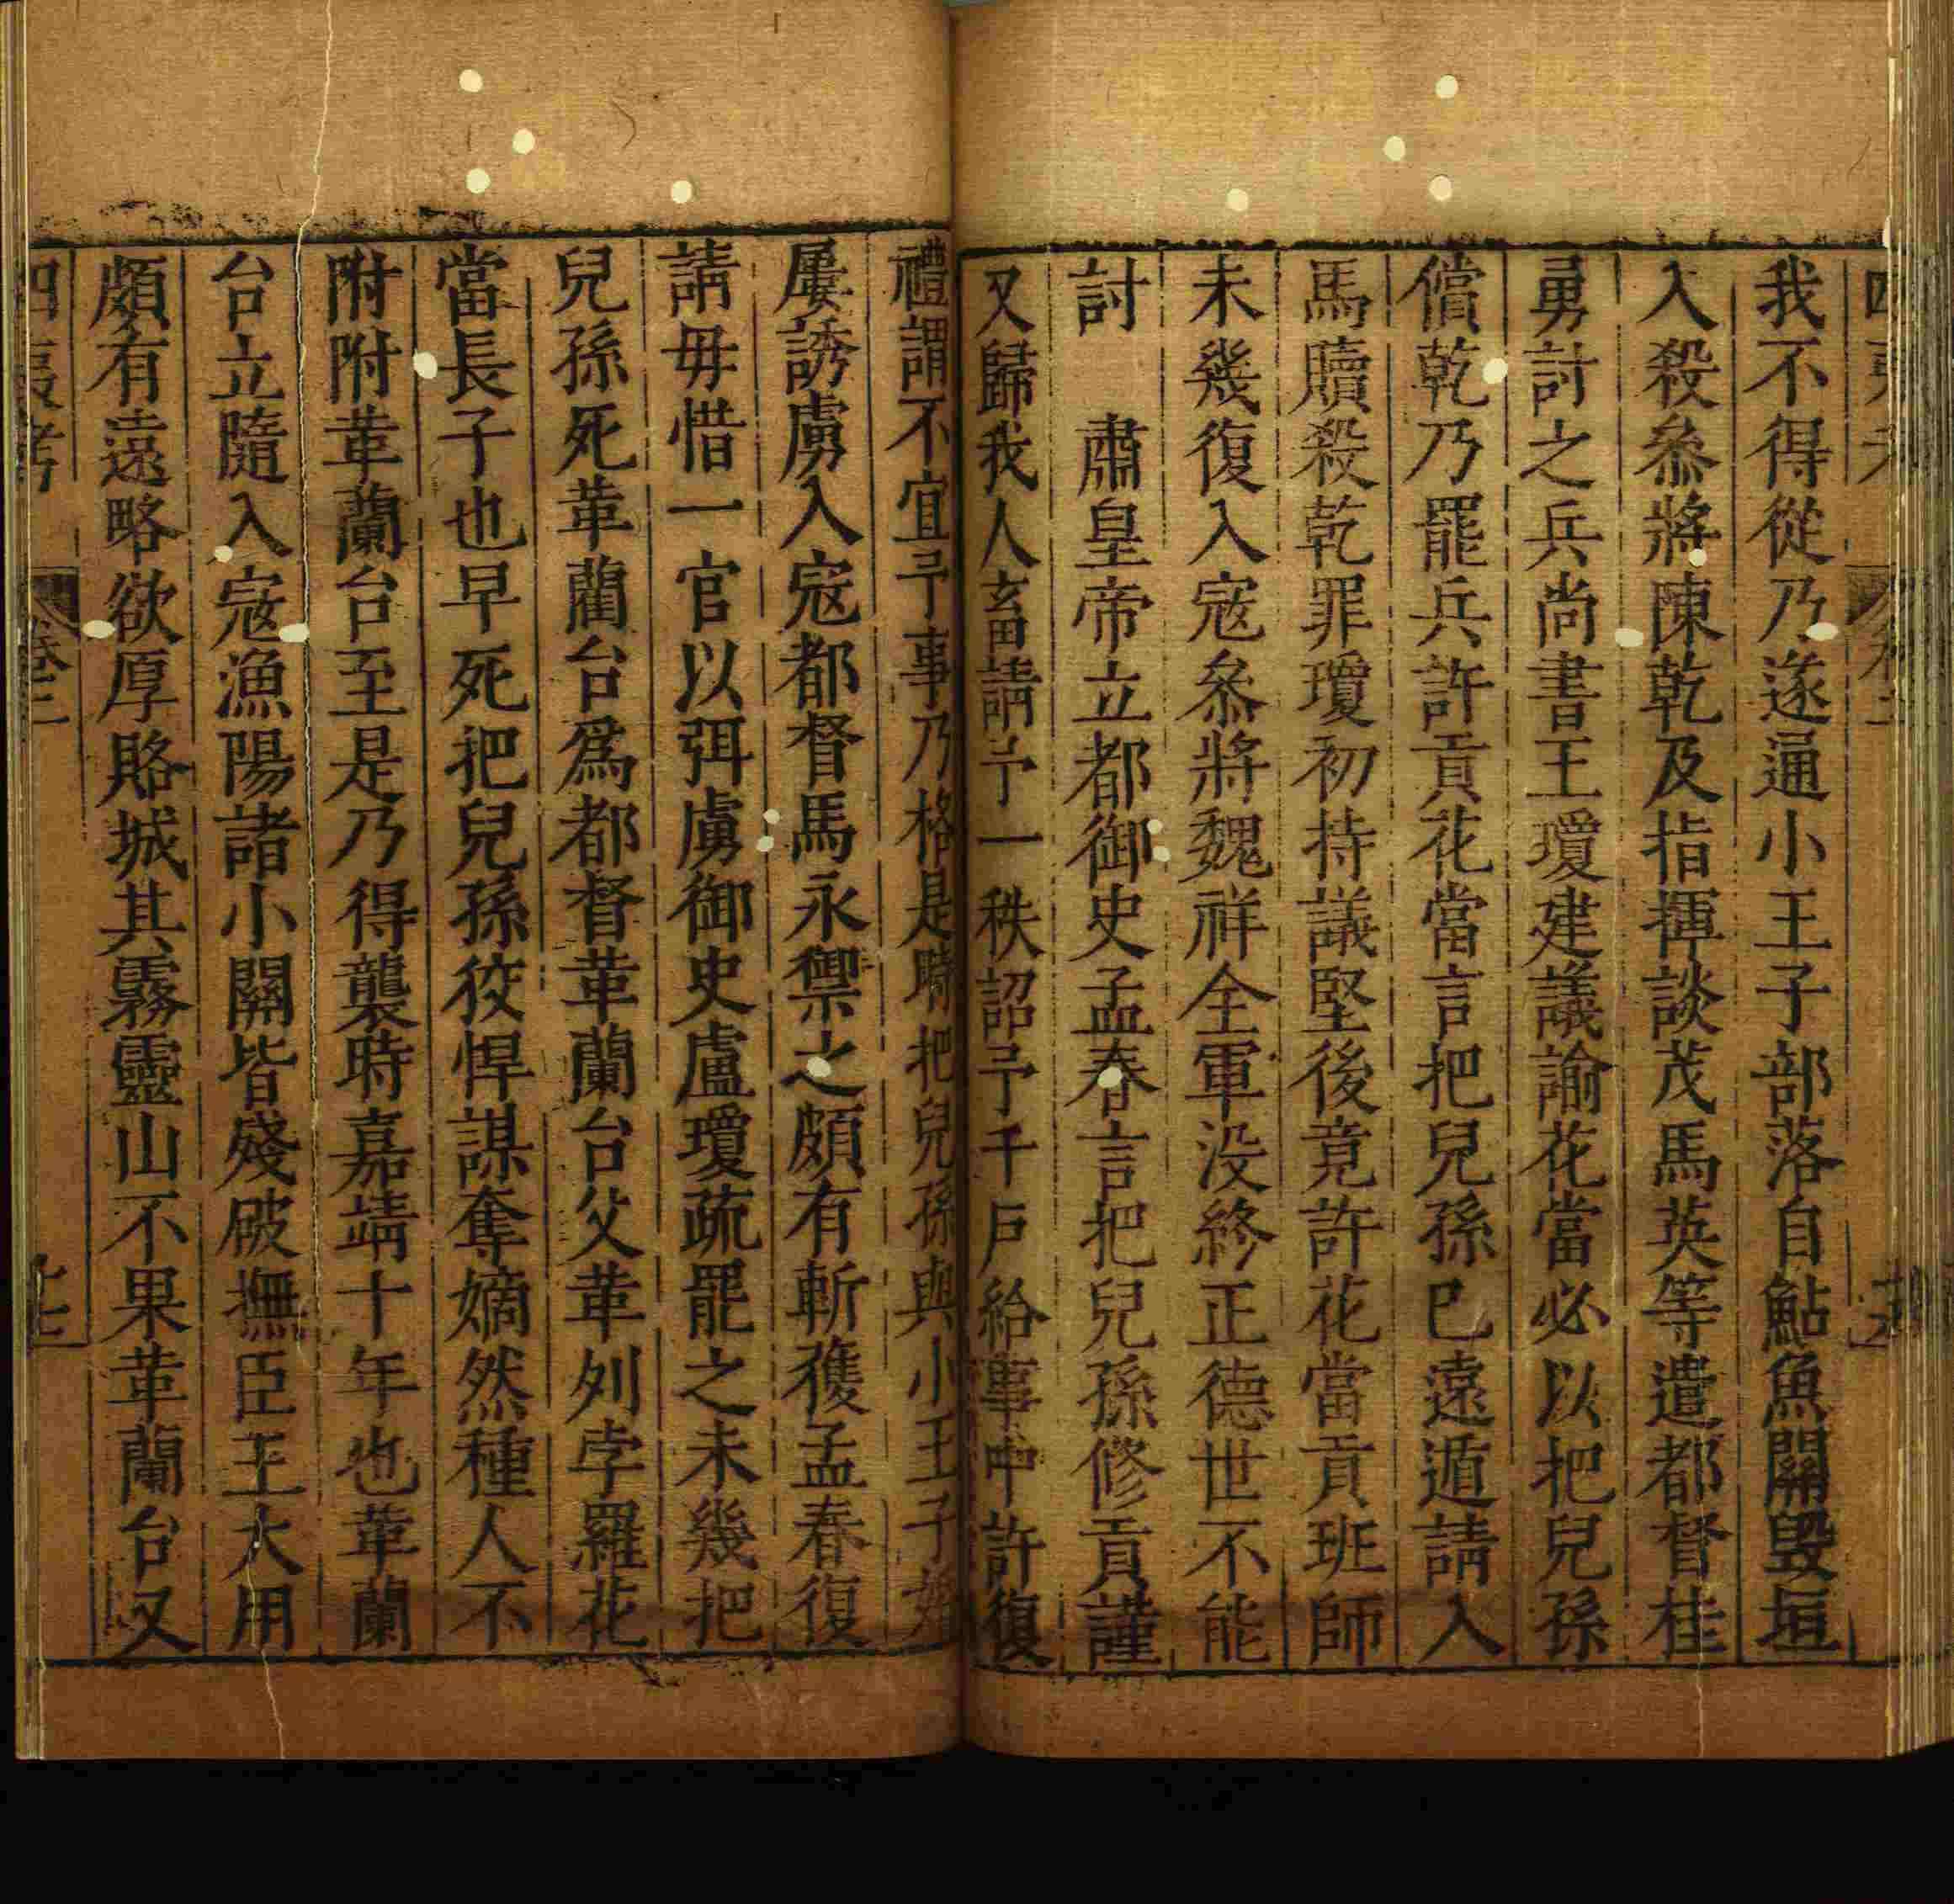 我不得從乃遂通小王子部落自鮎魚關毀垣
入殺叅將陳乾及指揮談茂馬英等遣都督桂
勇討之兵尚書王瓊建議諭花當必以把兒孫
償乾乃罷兵許貢花當言把兒孫已遠遁請入
馬贖殺乾罪瓊初持議堅後竟許花當貢班師
未幾復入寇叅將魏祥全軍没終正德世不能
討　肅皇帝立都御史孟春言把兒孫修貢謹
又歸我人畜請予一秩詔予千戶給事中許復
禮謂不宜予事乃格是時把兒孫與小王子婚
屢誘虜入寇都督馬永禦之頗有斬獲孟春復
請毋惜一官以弭虜御史盧瓊疏罷之未幾把
兒孫死革蘭台爲都督革蘭台父革列孛羅花
當長子也早死把兒孫狡悍謀奪嫡然種人不
附附革蘭台至是乃得襲時嘉靖十年也革蘭
台立隨入寇漁陽諸小關皆殘破撫臣王大用
頗有遠略欲厚賂城其霧靈山不果革蘭台又
四夷考　卷三　十七